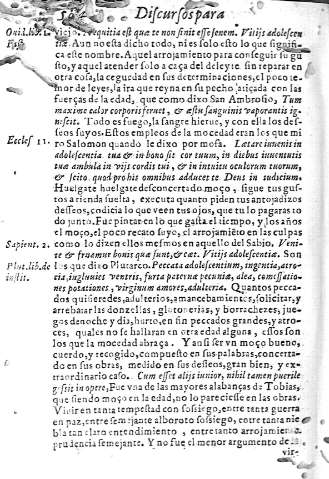 Discursos para
Ouid.lib.1. viejo. Nequitia est quæ te non sinit esse senem. Vitijs adolescen
Fast. tiæ. Aun no esta dicho todo, ni es solo esto lo que signifi
ca este nombre. Aquel arrojamiento para conseguir su gu
sto, y aquel atender solo a caça del deleyte sin reparar en
otra cosa, la ceguedad en sus determinaciones, el poco te-
mor de leyes, la ira que reyna en su pecho, atiçada con las
fuerças de la edad, que como dixo San Ambrosio, Tum
maxime calor corporis feruet, & æstu sanguinis vaporantis ig-
nescit. Todo es fuego, la sangre hierue, y con ella los des-
seos suyos. Estos empleos de la mocedad eran los que mi
Eccles. 11. ro Salomon quando le dixo por mofa. Lætare iuuenis in
adolescentia tua & in bono sit cor tuum, in diebus iuuentutis
tuæ ambula in vijs cordis tui, & in intuitu oculorum tuorum,
& scito quod pro his omnibus adducet te Deus in iudicium.
Huelgate huelgate desconcertado moço, sigue tus gus-
tos a rienda suelta, executa quanto piden tus antojadizos
desseos, codicia lo que veen tus ojos, que tu lo pagaras to
do junto. Fue pintar en lo que gasta el tiempo, y los años
el moço, el poco recato suyo, el arrojamiẽto en las culpas
Sapient. 2. como lo dizen ellos mesmos en aquello del Sabio. Veni-
te & fruamur bonis quæ sunt, & cæt. Vitijs adolescentiæ. Son
Plut. lib. de los que dixo Plutarco. Peccata adolescentium, ingentia, atro-
instit. cia, ingluuies ventris, furta paternæ pecuniæ, alea, comessatio-
nes potationes, virginum amores, adulteria. Quantos pecca-
dos quisieredes, adulterios, amancebamientos, solicitar, y
arrebatar las donzellas, glotonerias, y borracheces, jue-
gas de noche y dia, hurto, en fin peccados grandes, y atro-
ces, quales no se hallaran en otra edad alguna, essos son
los que la mocedad abraça. Y ansi ser vn moço bueno,
cuerdo, y recogido, compuesto en sus palabras, concerta-
do en sus obras, medido en sus desseos, gran bien, y ex-
traordinario caso. Cum esset alijs iunior, nihil tamen puerile
gessit in opere, Fue vna de las mayores alabanças de Tobias,
que siendo moço en la edad, no lo pareciesse en las obras.
Viuir en tanta tempestad con sossiego, entre tanta guerra
en paz, entre semejante alboroto sossiego, entre tanta nie
bla tan claro entendimiento, entre tanto arrojamiento
prudencia semejante. Y no fue el menor argumento de la
vir-